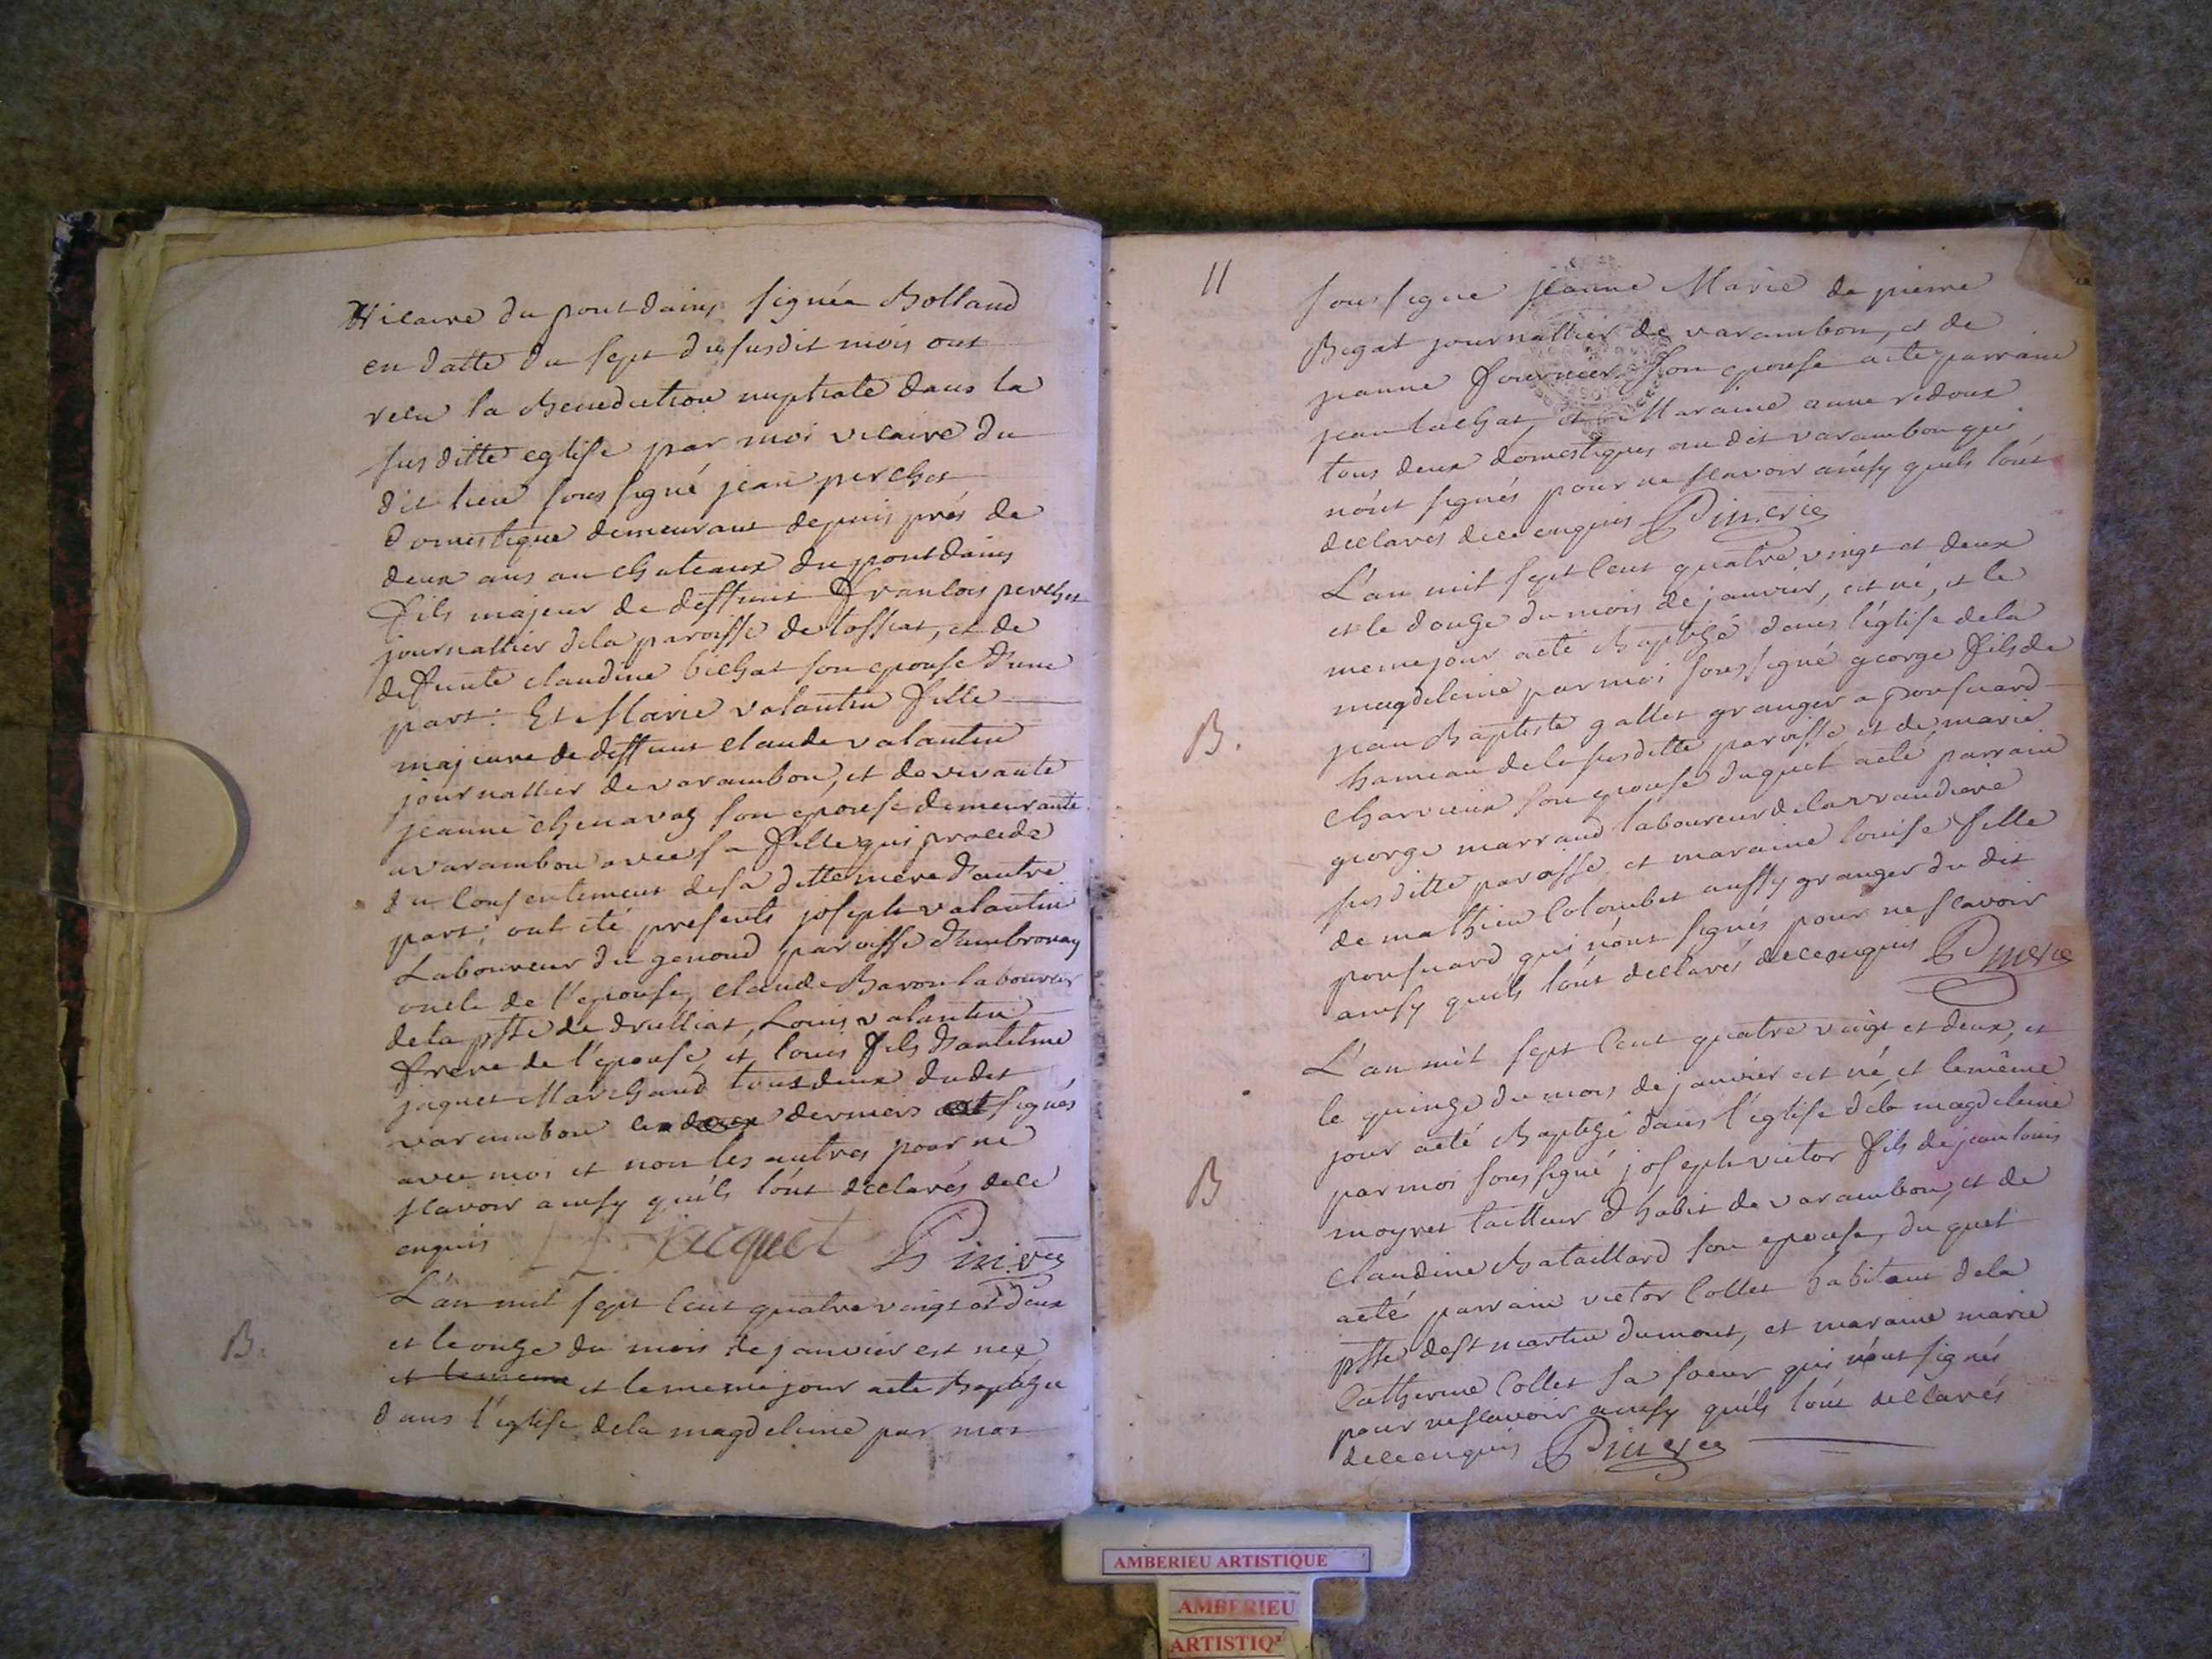 Vicaire du pont dains signée Bolland
en datte du sept du susdit mois ont
recu la Benediction nuptiale dans la
susditte eglise par moi vicaire du
dit lieu soussigné jean perchet
domestique demeurant depuis prés de
deux ans au chateaux du pont dains
fils majeur de deffunt francois perchet
journallier dela paroisse de tossiat, et de
deffunte claudine bichat son epouse d'une
part: Et Marie valantin fille
majeure de deffunt claude valantin
journallier de varambon, et de vivante
jeanne chenavaz son epouse demeurante
a varambon avec sa fille qui procede
du consentement de sa ditte mere d'autre
part; ont été presents joseph valantin
Laboureur du genoud paroisse d'ambronay
oncle de l'epouse, claude Baron laboureur
de la psse de druilliat, Louis valantin
frere de l'epouse, et louis fils d'antelme
jaquet Marchand tous deux dudit
varambon les deux derniers ont signés
avec moi et non les autres pour ne
scavoir ainsy quils l'ont declarés de ce
enquis L jacquet Pin vic
B. L'an mil sept cent quatre vingt et deux
et le onze du mois de janvier est neé
et le meme et le meme jour a eté Baptizée
dans l'eglise dela magdeleine par moi
11
soussigné jeanne Marie de pierre
Begat journallier de varambon, et de
jeanne fournier son epouse a eté parrain
jean lachat, et Maraine anne redoux
tous deux domestiques au dit varambon qui
n'ont signés pour ne scavoir ainsy quils l'ont
declarés de ce enquis Pin vic
L'an mil sept cent quatre vingt et deux
et le douze du mois de janvier, est né, et le
meme jour a eté Baptizé dans l'église de la
magdeleine par moi soussigné george fils de
B. jean Baptiste gallet granger a ponsuard
hameau de la susditte paroisse et de marie
charvieux son epouse duquel a eté parrain
george marrand laboureur de la vrandiere
susditte paroisse et maraine louise fille
de mathieu Colombet aussy granger du dit
ponsuard qui n'ont signés pour ne scavoir
ainsy quils l'ont declarés de ce enquis Pin vic
L'an mil sept cent quatre vingt et deux, et
le quinze du mois de janvier est né, et le même
jour a eté Baptizé dans l'église dela magdeleine
par moi soussigné joseph victor fils de jean louis
B moyret tailleur d'habit de varambon, et de
claudine Bataillard son epouse, du quel
a eté parrain victor Collet habitant dela
psse de st martin du mont, et maraine marie
Catherine Collet sa soeur qui n'ont signés
pour ne scavoir ainsy quils l'ont declarés
de ce enquis Pin vic
AMBERIEU ARTISTIQUE
AMBERIEU
ARTISTIQ